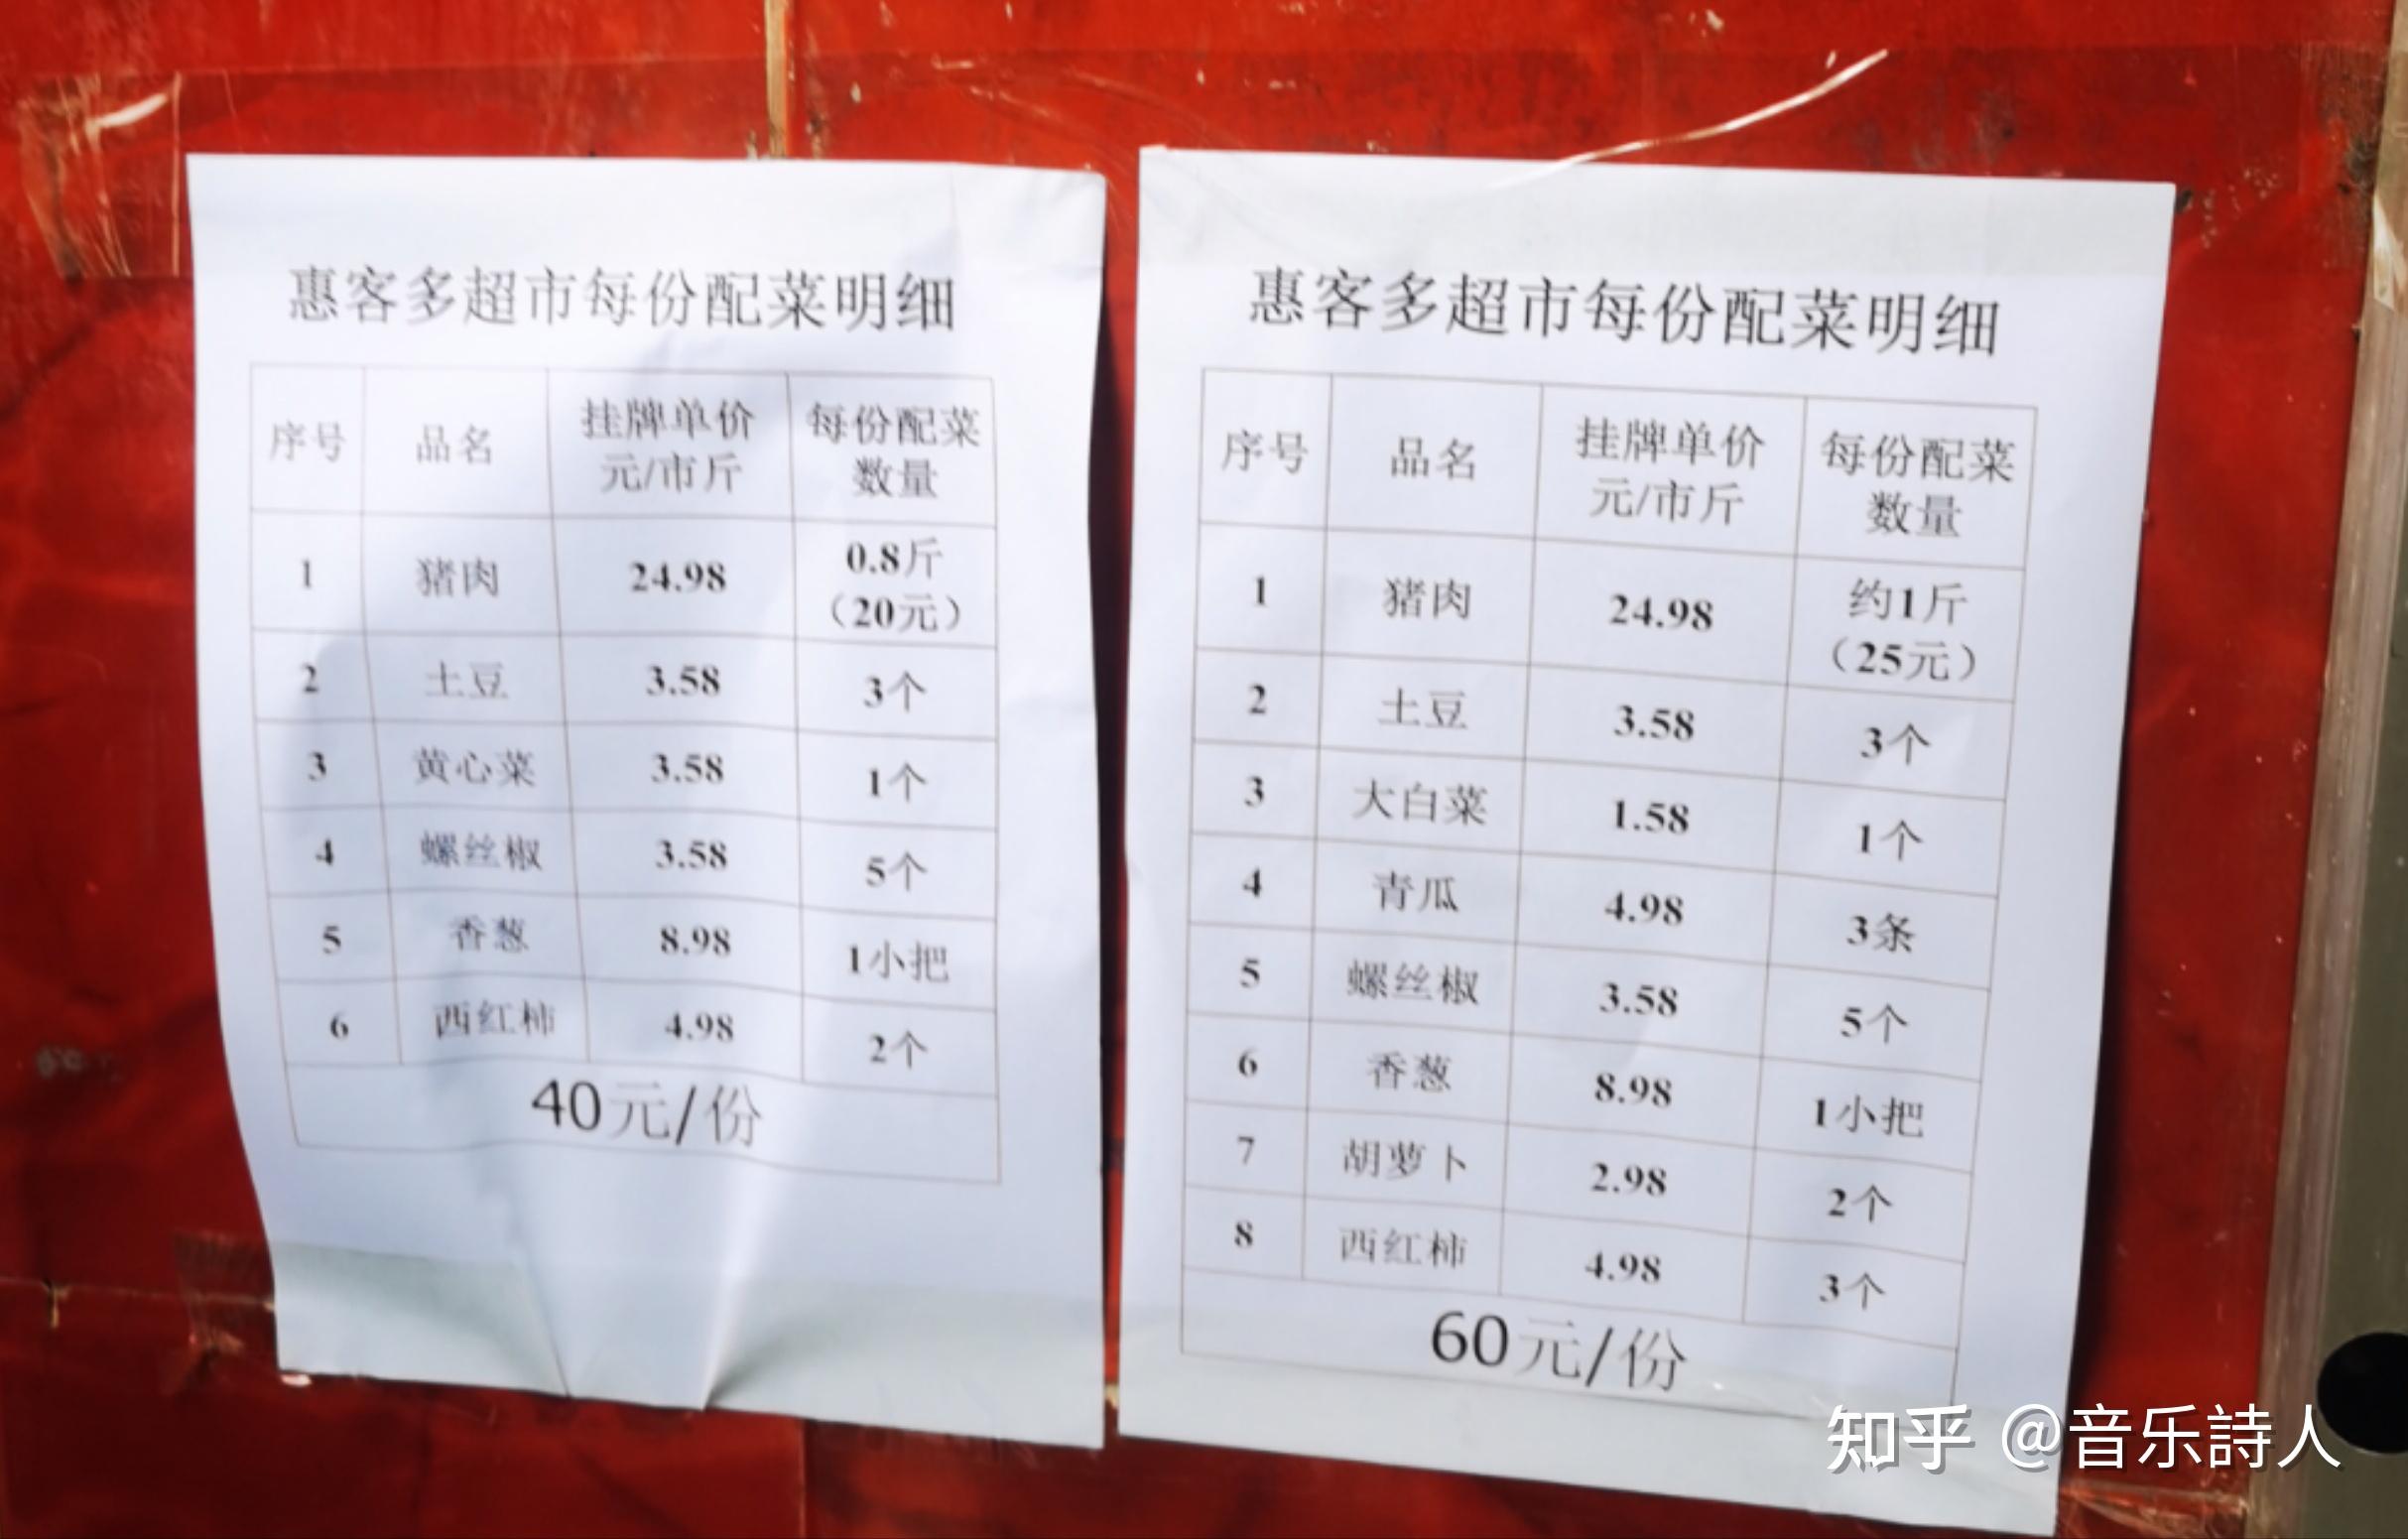 惠客多超市每份配菜明细
序号 品名 挂牌单价 元/市斤 每份配菜 数量
1 猪肉 24.98 0.8斤 （20元）
2 土豆 3.58 3个
3 黄心菜 3.58 1个
4 螺丝椒 3.58 5个
5 香葱 8.98 1小把
6 西红柿 4.98 2个
40元/份
惠客多超市每份配菜明细
序号 品名 挂牌单价 元/市斤 每份配菜 数量
1 猪肉 24.98 约1斤 （25元）
2 土豆 3.58 3个
3 大白菜 1.58 1个
4 青瓜 4.98 3条
5 螺丝椒 3.58 5个
6 香葱 8.98 1小把
7 胡萝卜 2.98 2个
8 西红柿 4.98 3个
60元/份
知乎 @音乐詩人